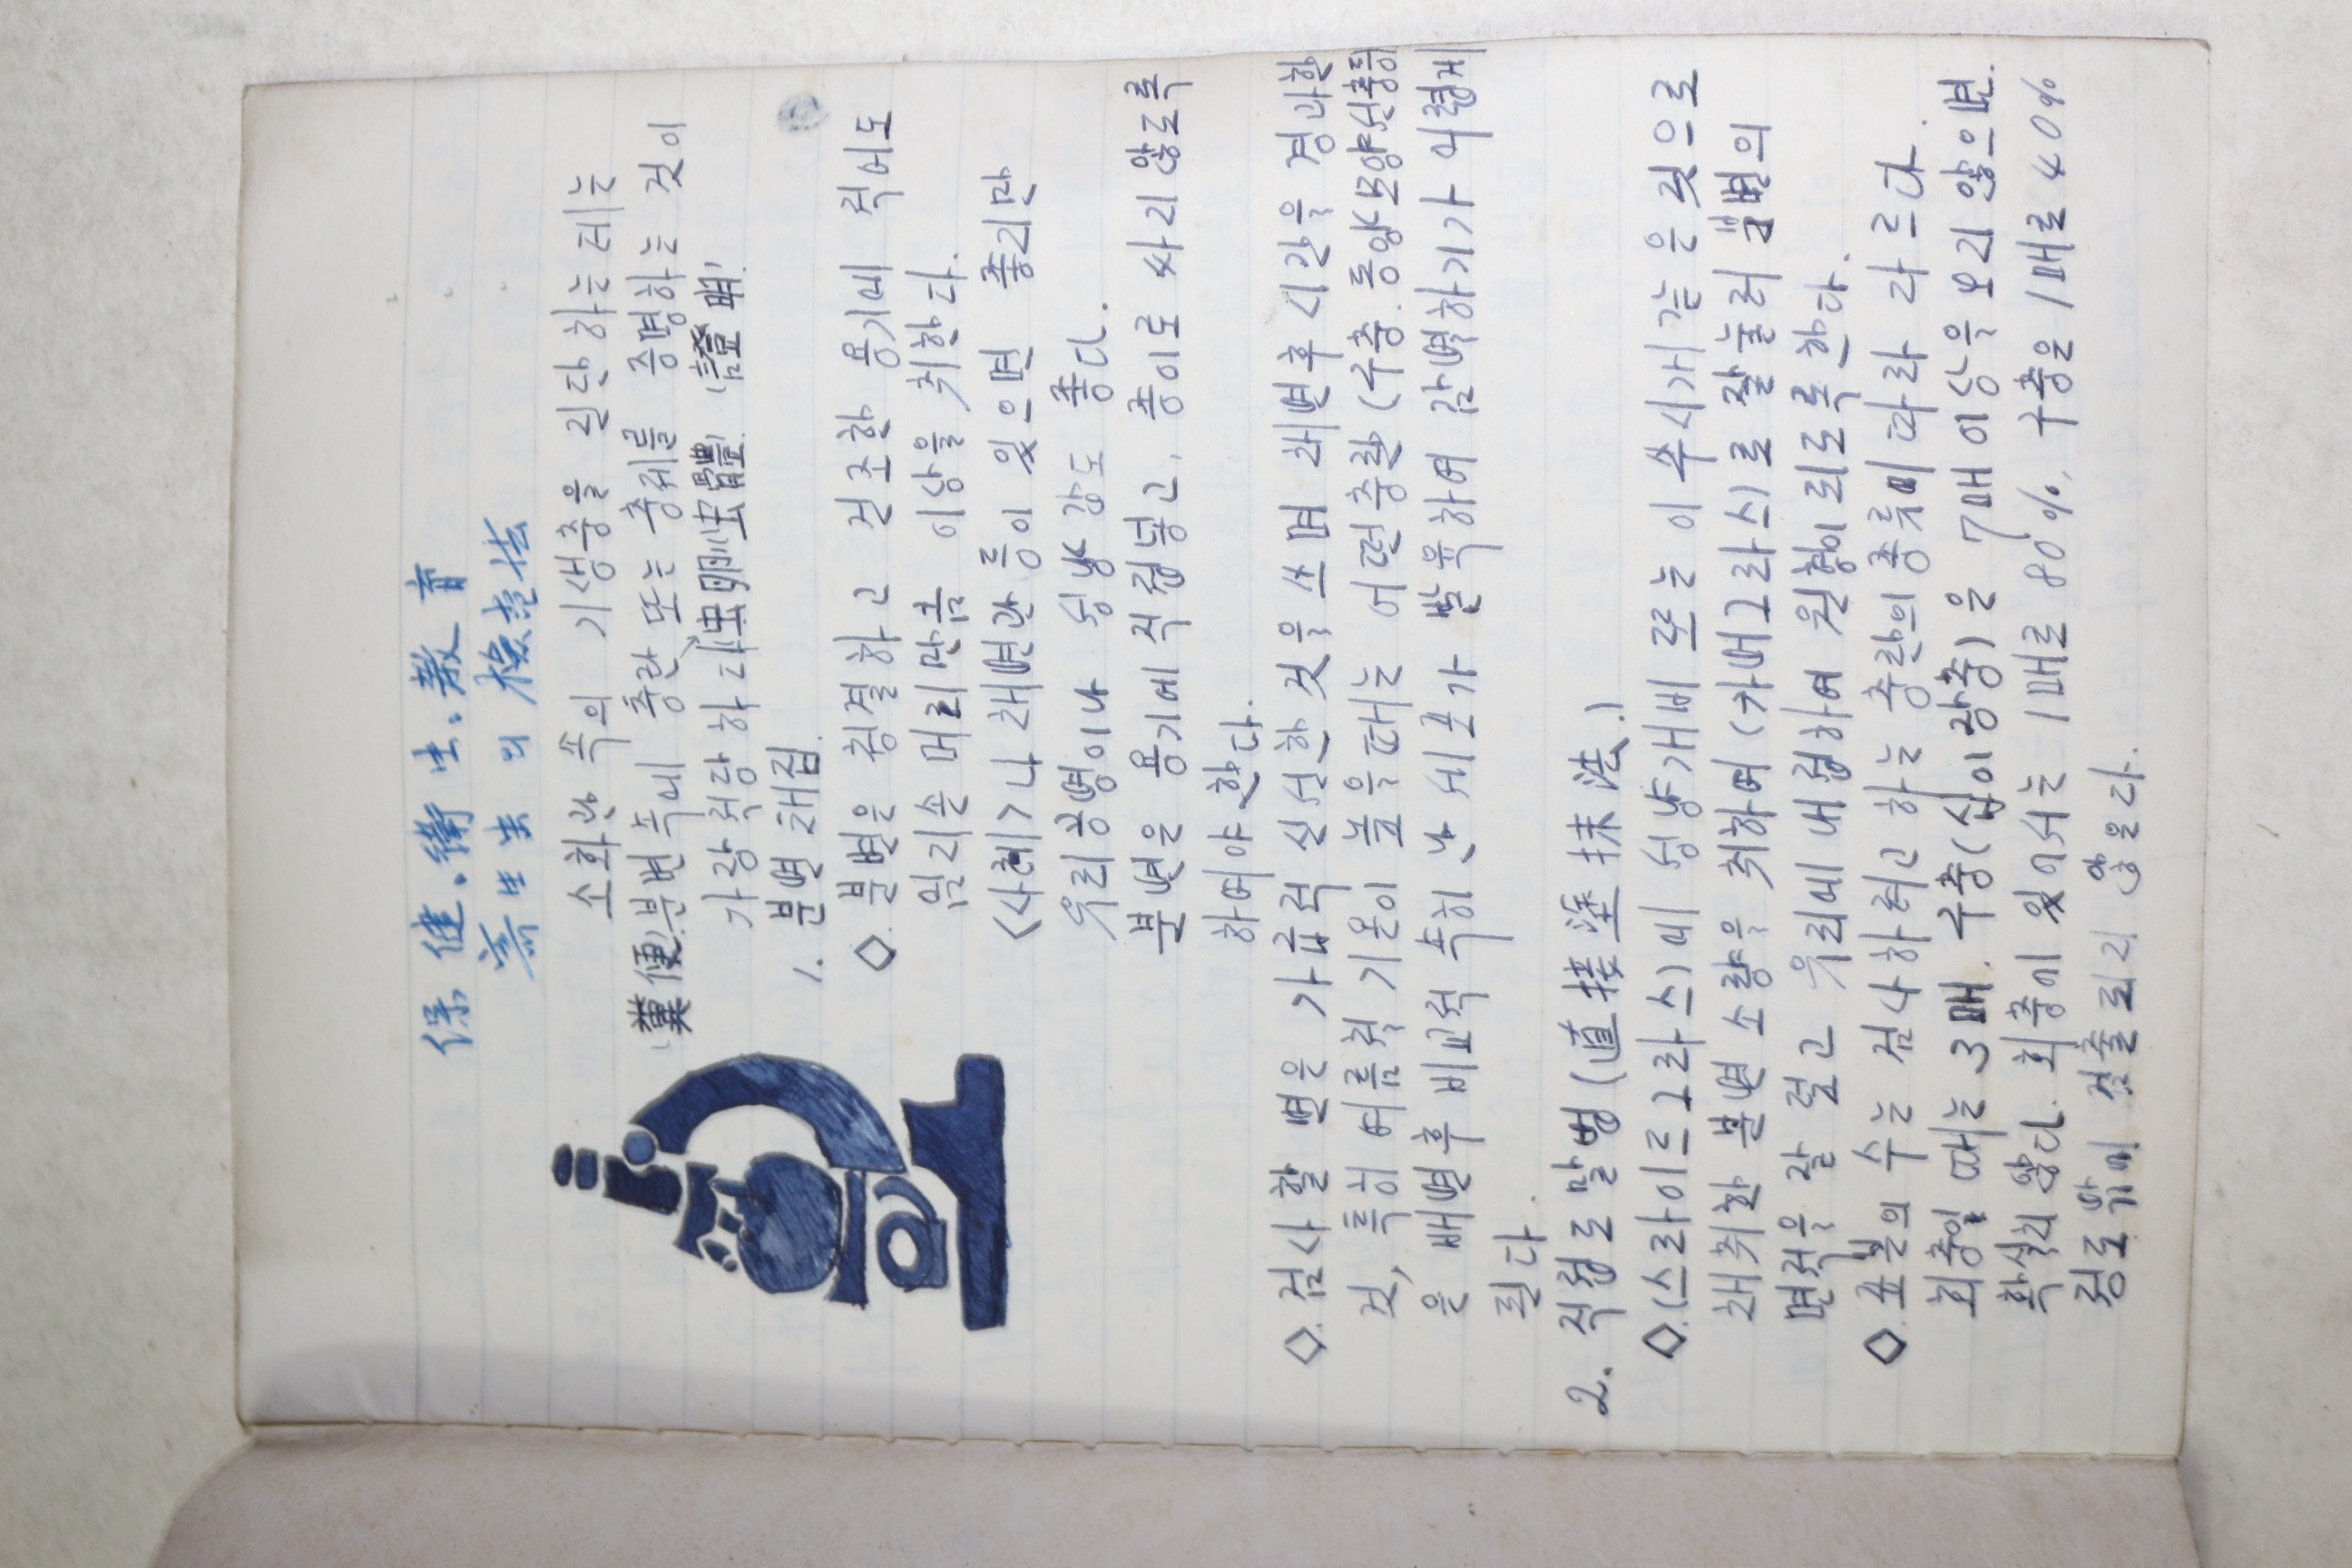 保健、衛生、敎育
寄生虫의 檢査法
소화관 속의 기생충을 진단하는데는
(糞便)분변속에 충란 또는 충체를 증명하는 것이
가장 적당하다(虫卵)(虫體) (證明)
1. 분변 채집.
◇. 분변은 청결하고 건조한 용기에 적어도
엄지손 머리만큼 이상을 취한다.
<사례>나 채변관 등이 있으면 좋지만
유리공병이나 성냥갑도 좋다.
분변은 용기에 직접넣고, 종이로 싸지않도록
하여야 한다.
◇. 검사할 변은 가급적 신선한 것을 쓰며 채변후 시간을 경과한
것, 특히 여름철 기온이 높을때는 어떤충란(구충.동양모양선충등)
은 배변후 비교적 속히 난세포가 발육하여 감별하기가 어렵게
된다.
2. 직접도말법(直接塗抹法.)
◇.(스라이드그라스)에 성냥개비 또는 이쑤시개같은 것으로
채취한 분변 소량을 취하여(카버그라스)로 잘눌러 검변의
면적을 잘 넓고 유리에 내접하여 원형이되도록 한다.
◇. 표본의 수는 검사하려고 하는 충란의 종류에따라 다르다.
회충일 때는 3매. 구충(십이장충)은 7매이상을 보지않으면.
확실치 않다. 회충에 있어서는 1매로 80%, 구충은 1매로 40%
정도밖에 검출되지 않은다.